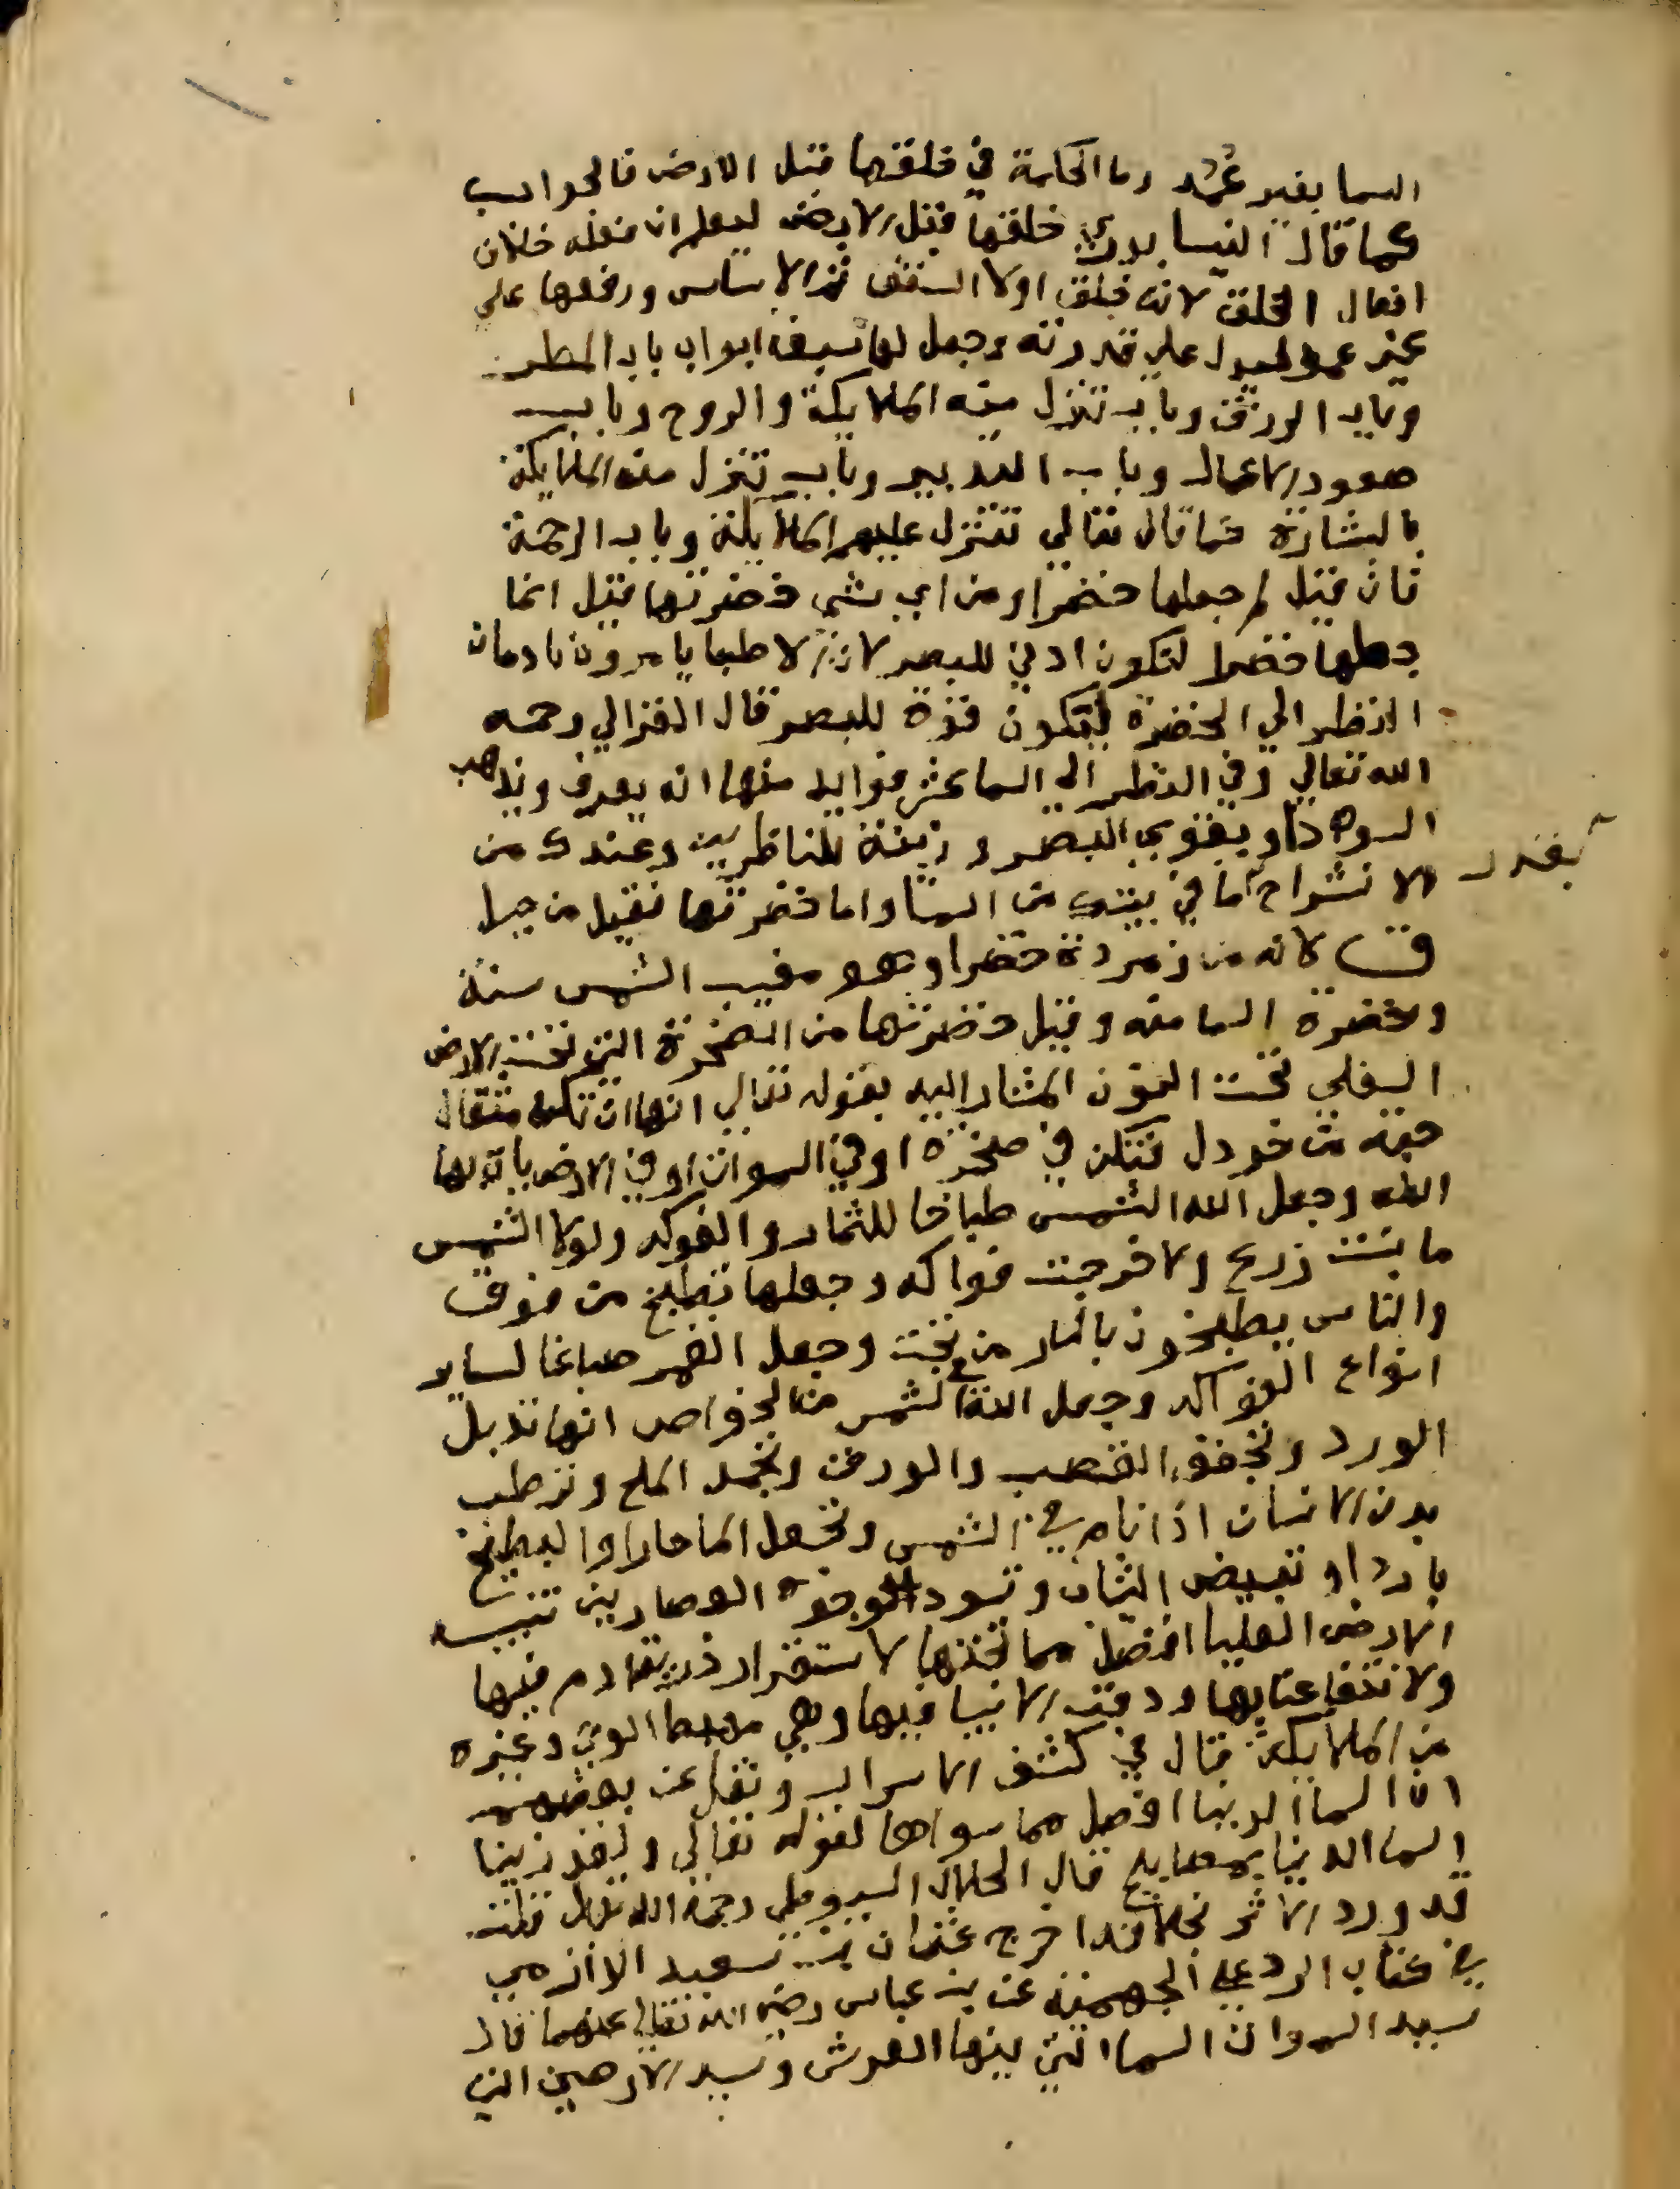 السما بغير عمد وما الحكمة في خلقها قبل الارض فالجواب
كما قال النيسابوري خلقها قبل الارض ليعلم ان فعله خلاف
افعال الخلق لانه خلق اولا السقف ثم الاساس ورفعها على
غير عمد ليدل على قدرته وجعل لها سبعة ابواب باب المطر
وباب الرزق وباب تنزل منه الملايكة والروح وباب
صعود الاعمال وباب التدبير وباب تنزل منه الملايكة
بالبشارة كما قال تعالي تتنزل عليهم الملايكة وباب الرحمة
فان قيل لم جعلها خضرا ومن اي شي خضرتها قيل انما
جعلها خضرا لتكون اوفي للبصر لان الاطبا يامرون بادمان
النظر الي الخضرة لتكون قوة للبصر قال الغزالي رحمه
الله تعالي وفي النظر الي السما عشر فوايد منها انه يعرف ويذهب
السوداء ويقوي البصر وزينة للناظرين وعندك من
الانشراح بقدر ما في بيتك من السما واما خضرتها فقيل من جبل
ق لانه من زمردة خضرا وهو مغيب الشمس سنة
وخضرة السما منه وقيل خضرتها من الصخرة التي تحت الارض
السفلي تحت النون المشار اليه بقوله تعالي انها ان تك مثقال
حبة من خردل فتكن في صخرة او في السموات او في الارض يات بها
الله وجعل الله الشمس طباخا للثمار والفوكه ولولا الشمس
ما نبتت زرع ولا خرجت فواكه وجعلها تطبخ من فوق
والناس يطبخون بالنار من تحت وجعل القمر صباغا لساير
انواع الفواكه وجعل الله في الشمس من الخواص انها تذبل
الورد وتجفف القصب والورق وتجمد الملح وترطب
بدن الانسان اذا نام في الشمس وتجعل الما حارا والبطيخ
باردا وتبيض الثياب وتسود الوجوه القصارين تنبيه
الارض العليا افضل مما تحتها لاستقرار ذرية ادم فيها
ولانتفاعنا بها ودفن الانبيا فيها وهي مهبط الوحي وغيره
من الملايكة قال في كشف الاسرار ونقل عن بعضهم
ان السما الدنيا افضل مما سواها لقوله تعالي ولقد زينا
السما الدنيا بمصابيح قال الجلال السيوطي رحمه الله تعالي قلت
قد ورد الاثر بخلافه اخرج عثمان بن سعيد الدارمي
في كتاب الرد علي الجهمية عن بن عباس رضي الله تعالي عنهما قال
سيد السموات السما التي فيها العرش وسيد الارضين التي